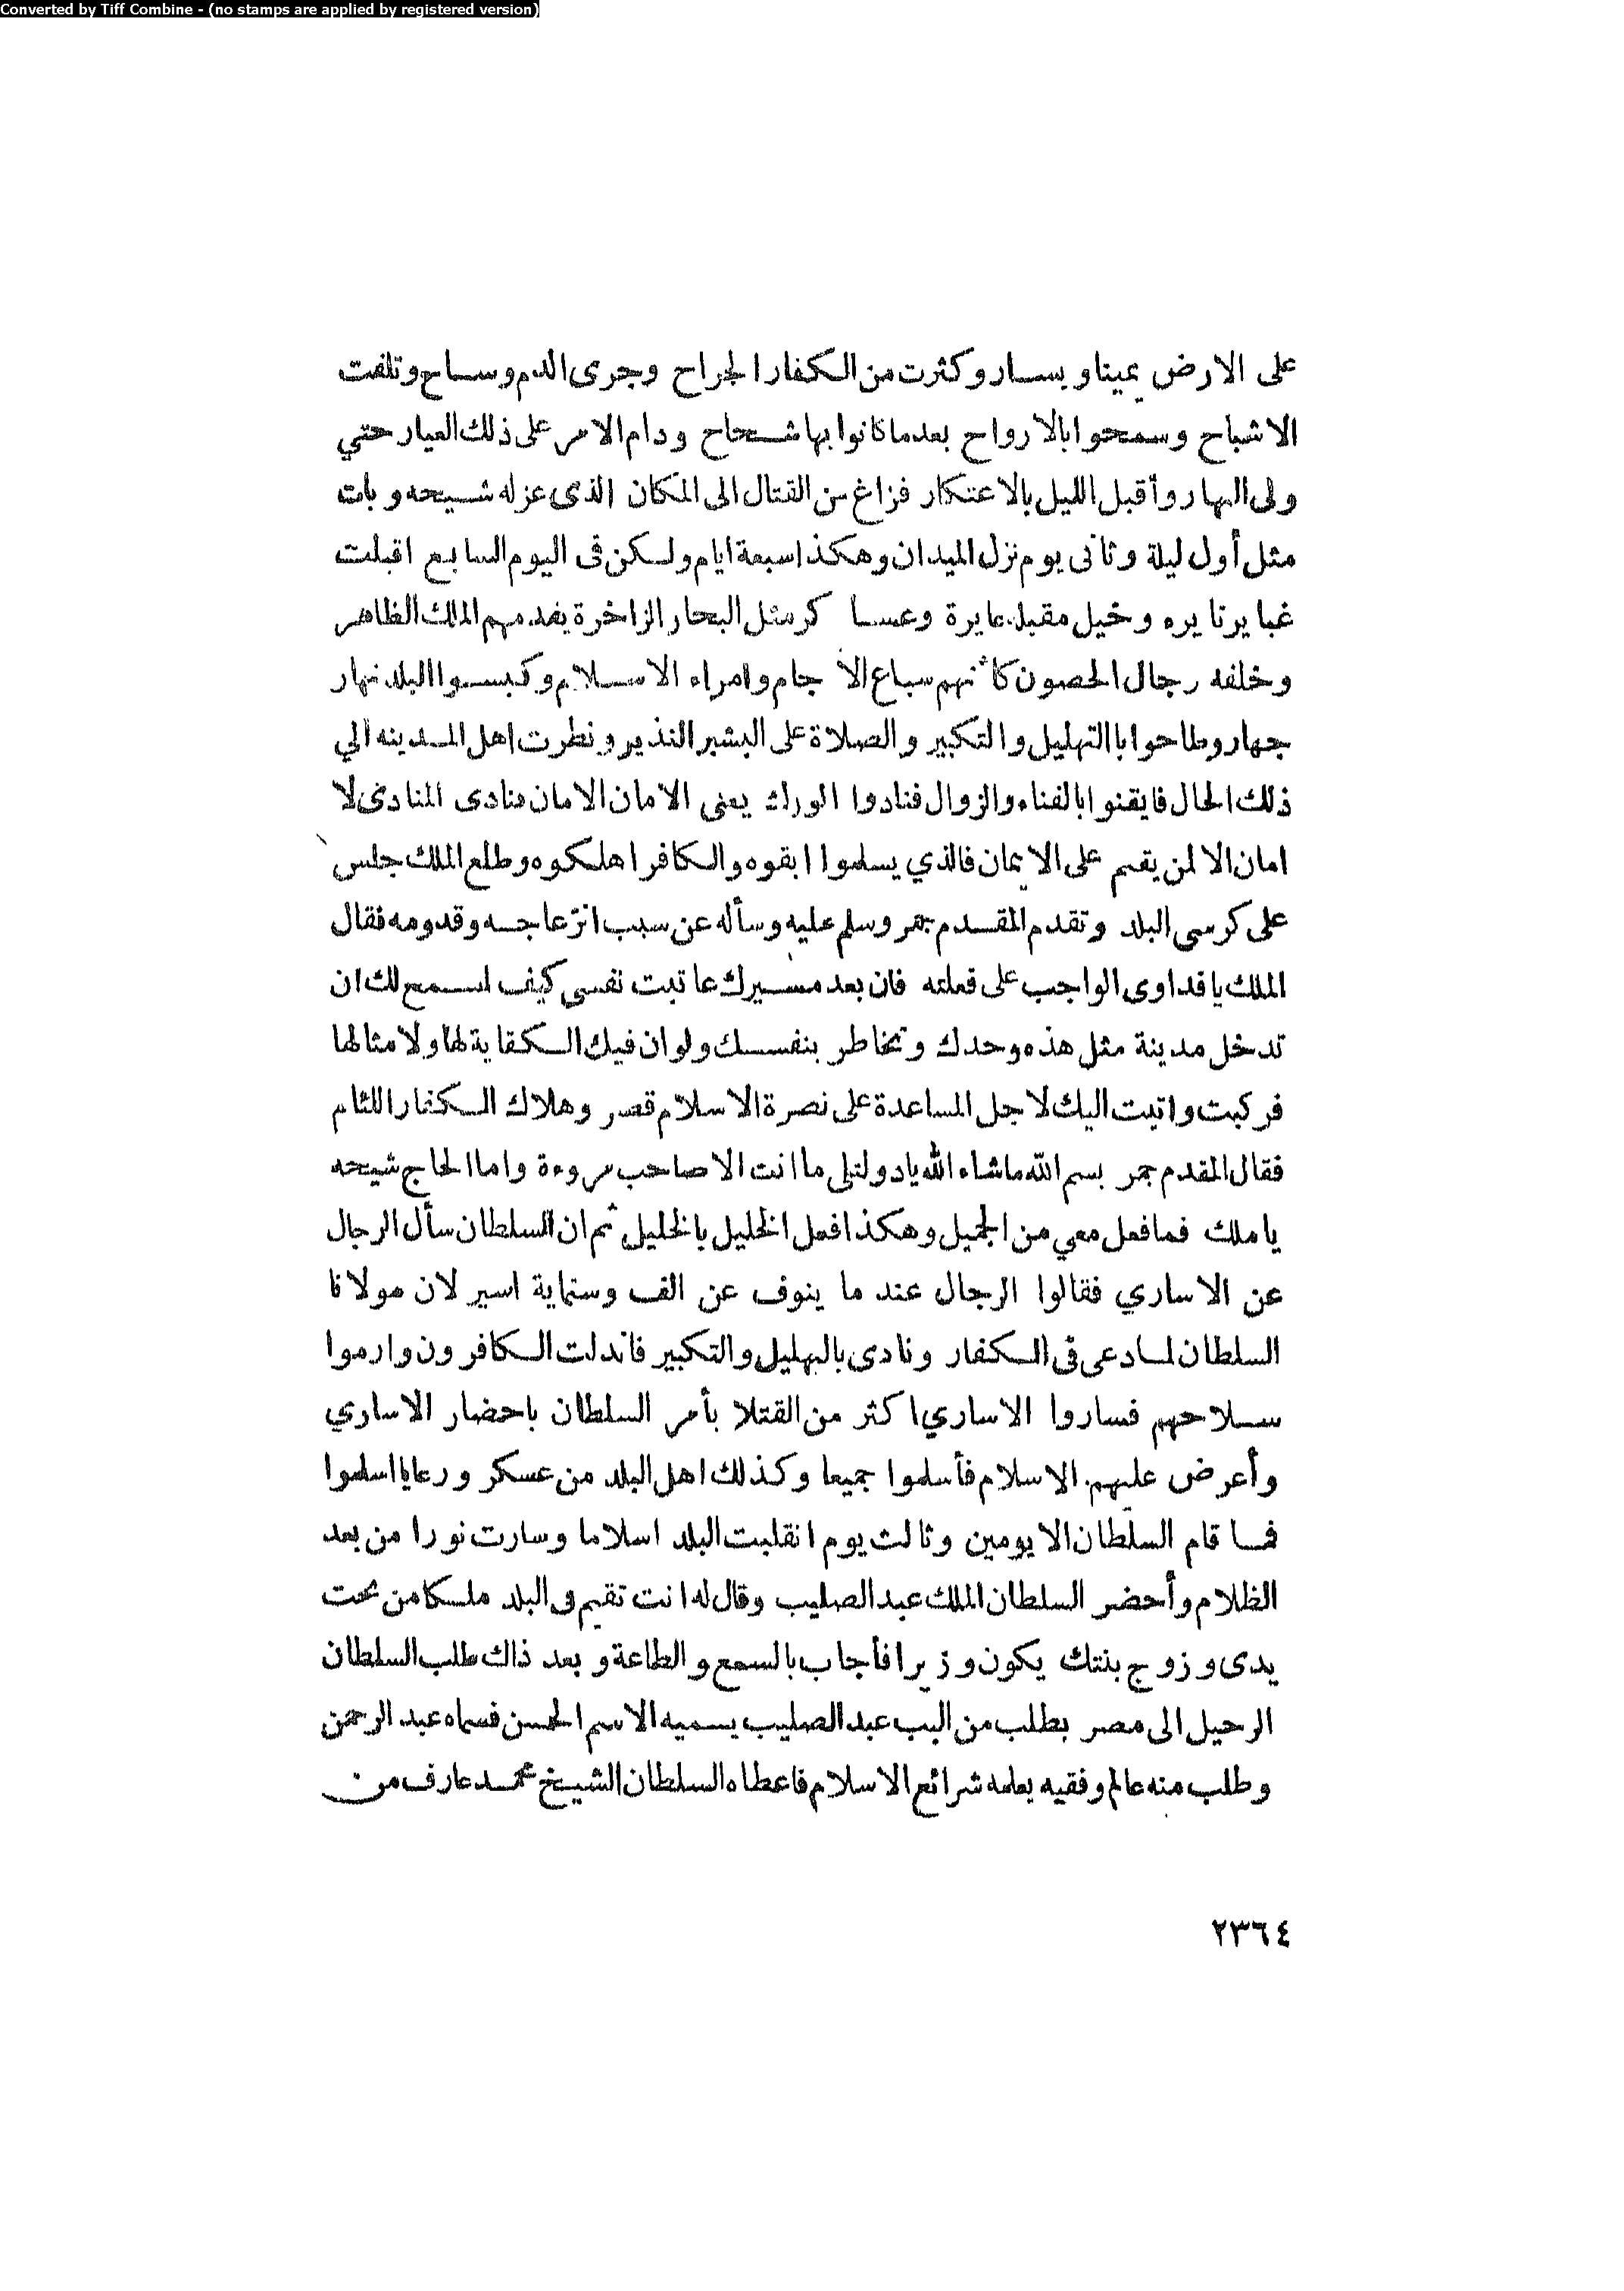 Converted by Tiff Combine - (no stamps are applied by registered version)
على الارض يمينا ويسار وكثرت من الكفار الجراح وجرى الدم وساح وتلفت
الاشباح وسمحوا بالارواح بعدما كانوا بها شحاح ودام الامر على ذلك العيار حتي
ولى النهار وأقبل الليل بالاعتكار فزاغ من القتال الى المكان الذى عزله شيحه وبات
مثل أول ليلة وثانى يوم نزل الميدان وهكذا سبعة ايام ولكن فى اليوم السابع اقبلت
غبا يرنا يره وخيل مقبله عايرة وعسا كر مثل البحار الزاخرة يقدمهم الملك الظاهر
وخلفه رجال الحصون كأنهم سباع الآ جام وامراء الاسلام وكبسوا البلد نهار
جهار وطاحوا باالتهليل والتكبير والصلاة على البشير النذير ونظرت اهل المدينه الي
ذلك الحال فايقنوا بالفناء والزوال فنادوا الوراث يعنى الامان الامان منادى المنادى لا
امان الا لمن يقسم على الايمان فالذي يسلموا ابقوه والكافر اهلكوه وطلع الملك جلس
على كرسى البلد وتقدم المقدم جمر وسلم عليه وسأله عن سبب انزعاجه وقدومه فقال
الملك يافداوى الواجب على فعلته فان بعد مسيرك عاتبت نفسي كيف اسمع لك ان
تدخل مدينة مثل هذه وحدك وتخاطر بنفسك ولوان فيك الكفاية لها ولا مثالها
فركبت واتيت اليك لاجل المساعدة على نصرة الاسلام قصر وهلاك الكفار اللئام
فقال المقدم جمر بسم الله ماشاء الله يادولتلى ما انت الا صاحب مروءة واما الحاج شيحه
ياملك فما فعل معي من الجميل وهكذا فعل الخليل بالخليل ثم ان السلطان سأل الرجال
عن الاساري فقالوا الرجال عند ما ينوف عن الف وستماية اسير لان مولانا
السلطان لما دعى فى الكفار ونادى بالتهليل والتكبير فاندلت الكافرون وارموا
سلاحهم فساروا الاساري اكثر من القتلا بأمر السلطان باحضار الاساري
وأعرض عليهم الاسلام فأسلموا جميعا وكذلك اهل البلد من عسكر ورعايا اسلموا
فما قام السلطان الا يومين وثالث يوم انقلبت البلد اسلاما وسارت نورا من بعد
الظلام وأحضر السلطان الملك عبد الصليب وقال له انت تقيم فى البلد ملكا من تحت
يدى وزوج بنتك يكون وزيرا فأجاب بالسمع والطاعة وبعد ذاك طلب السلطان
الرحيل الى مصر بطلب من البب عبد الصليب يسميه الاسم الحسن فسماه عبد الرحمن
وطلب منه عالم وفقيه يعلمه شرائع الاسلام فاعطاه السلطان الشيخ محمد عارف من
٢٣٦٤